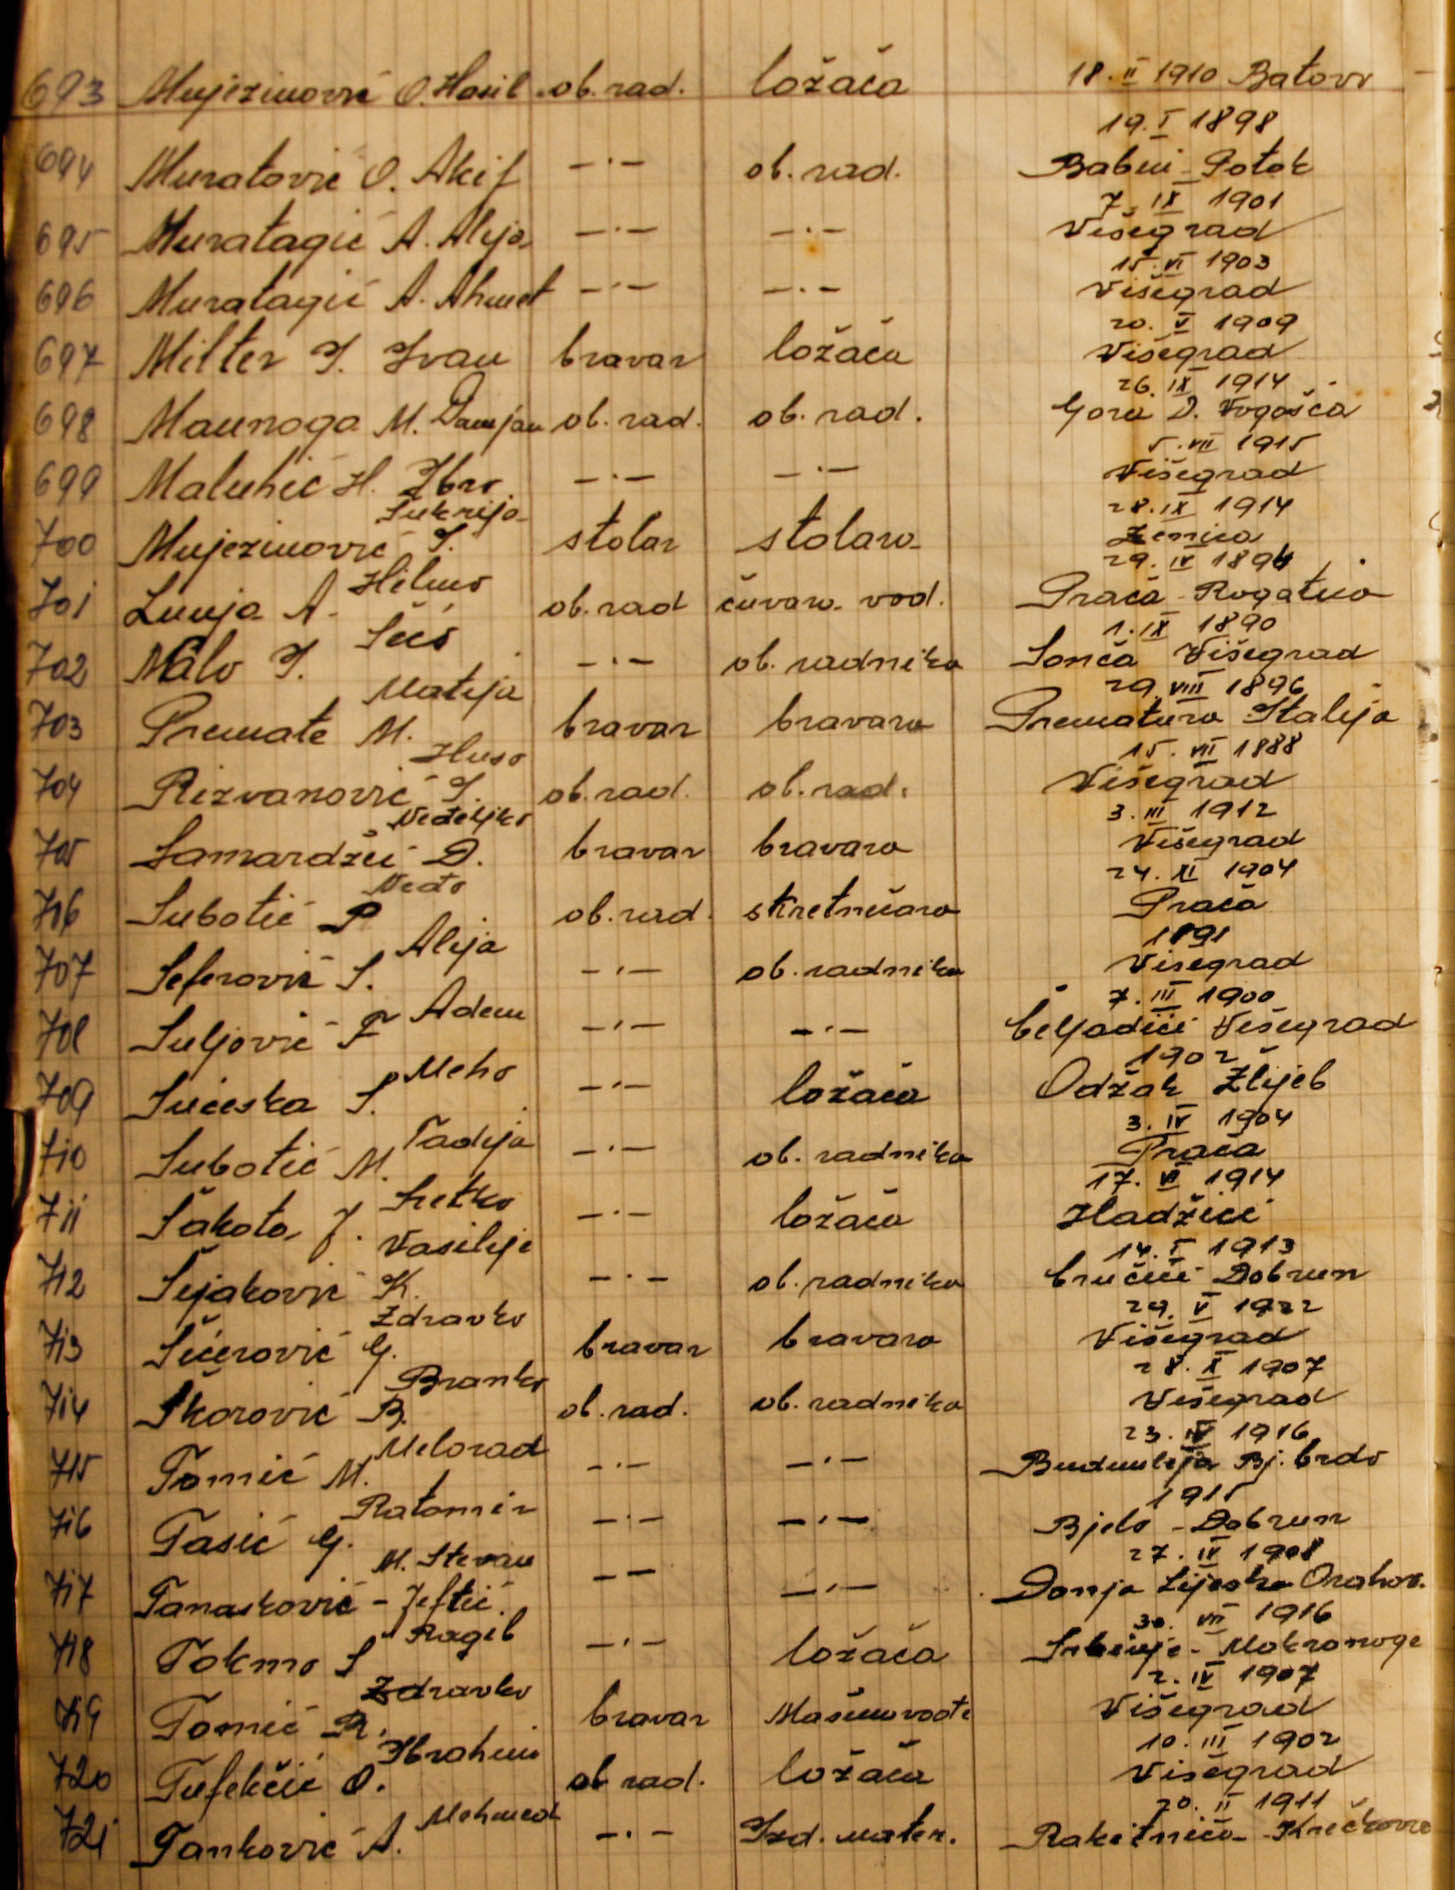 693 Mujezinović O. Halil ob. rad. ložača 18. II 1910 Batovo
19. I 1898
694 Muratović O. Akif —·— ob. rad. Babin Potok
7. IX 1901
695 Muratagić A. Alija —·— —·— Višegrad
15. VI 1903
696 Muratagić A. Ahmet —·— —·— Višegrad
20. V 1909
697 Milter I. Ivan bravar ložača Višegrad
26. IX 1914
698 Maunoga M. Damjan ob. rad. ob. rad. Gora D. Vogošća
5. VII 1915
699 Maluhić H. Ibro —·— —·— Višegrad
Šukrija 28. IX 1914
700 Mujezinović I. stolar stolara Zenica
Hilmo 29. IV 1894
701 Lunja A. ob. rad čuvara vod. Prača - Rogatica
Šećo 1. IX 1890
702 Malo I. —·— ob. radnika Višegrad
Matija 29. VIII 1896
703 Premate M. bravar bravara Prematura Italija
Huso 15. VII 1888
704 Rizvanović I. ob. rad. ob. rad. Višegrad
Nedeljko 3. III 1912
705 Samardžić D. bravar bravara Višegrad
Neđo 24. XI 1904
706 Subotić P ob. rad. skretničara Prača
Alija 1891
707 Seferović S. —·— ob. radnika Višegrad
Adem 7. III 1900
708 Suljović F —·— —·— Višegrad
Meho 1902
709 Sućeska S. —·— ložača Odžak Žlijeb
Tadija 3. IV 1904
710 Subotić M. —·— ob. radnika Prača
Sretko 17. VI 1914
711 Šakota J. —·— ložača Hadžići
Vasilije 14. I 1913
712 Šijaković K. —·— ob. radnika Dobrun
Zdravko 29. V 1922
713 Šićerović G. bravar bravara Višegrad
Branko 28. X 1907
714 Škorović B. ob. rad. ob. radnika Višegrad
Milorad 23. IV 1916
715 Tomić M. —·— —·— Budimlija Bj. brdo
Ratomir 1915
716 Tasić G. —·— —·— Bjelo - Dobrun
M. Stevan 27. IV 1908
717 Tanasković - Jeftić. —— —·— Donja Lijeska Orahov.
Ragib 30. VII 1916
718 Tokmo S —·— ložača Mokronoge
Zdravko 2. IV 1907
719 Tomić R. bravar Mašinovođe Višegrad
Ibrahim 10. III 1902
720 Tufekčić O. ob rad. ložača Višegrad
Mehmed 20. II 1911
721 Tanković A. —·— Izd. mater. Rakitnica